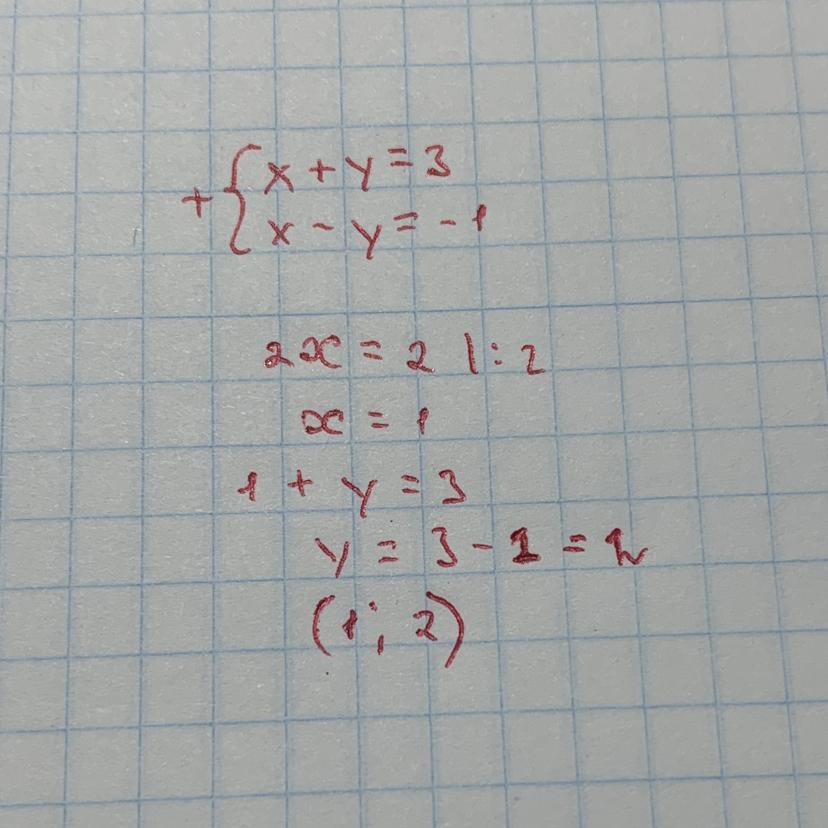 + { x + y = 3
x - y = -1
2x = 2 | : 2
x = 1
1 + y = 3
y = 3 - 1 = 2
(1; 2)